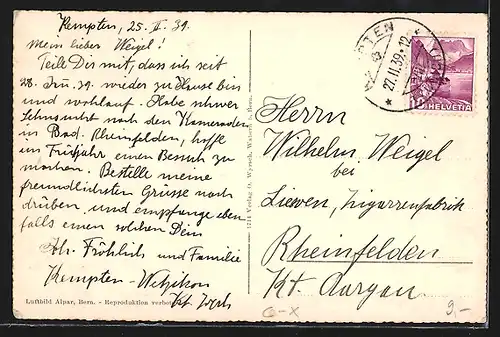 Kempten, 25. II. 39.
Mein lieber Weigel!
Teile Dir mit, dass ich seit
28. Jan. 39. wieder zu Hause bin
und wohlauf. Habe schwer
Sehnsucht nach den Kameraden
in Bad. Rheinfelden, hoffe
im Frühjahr einen Besuch zu
machen. Bestelle meine
freundlichsten Grüsse nach
drüben, und empfange eben
falls einen solchen Dein
Joh. Fröhlich und Familie
Kempten-Wetzikon
Kt. Zürch
Luftbild Alpar, Bern. - Reproduktion verboten
1214 Verlag O. Wyrsch, Wabern b. Bern.
KEMPTEN
27.II.39.-12
HELVETIA
10
Herrn
Wilhelm Weigel
bei
Liewen, Zigarrenfabrik
Rheinfelden
Kt. Aargau
G-X
9.-